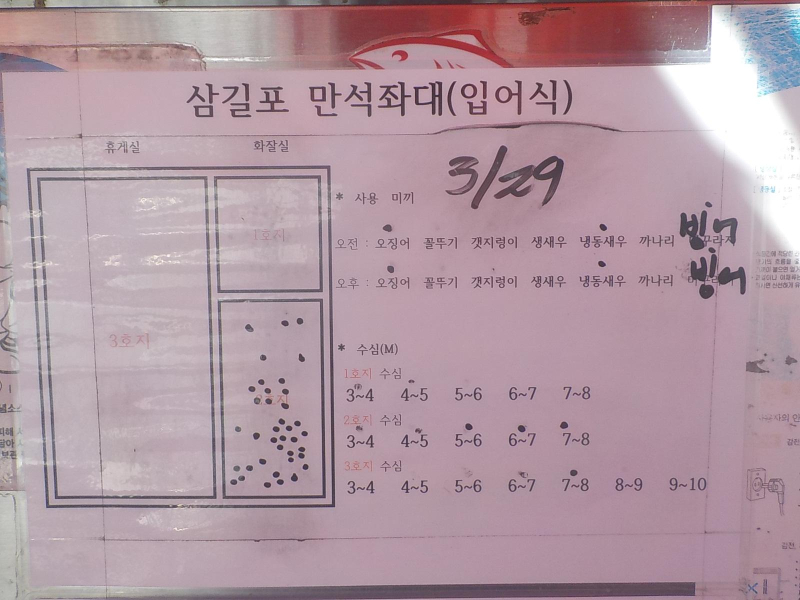 삼길포 만석좌대(입어식)
휴게실
화잘실
3/29
* 사용 미끼
1호지
오전 : 오징어 꼴뚜기 갯지렁이 생새우 냉동새우 까나리 빙어
오후 : 오징어 꼴뚜기 갯지렁이 생새우 냉동새우 까나리 빙어
3호지
* 수심(M)
1호지 수심
3~4 4~5 5~6 6~7 7~8
2호지 수심
3~4 4~5 5~6 6~7 7~8
3호지 수심
3~4 4~5 5~6 6~7 7~8 8~9 9~10